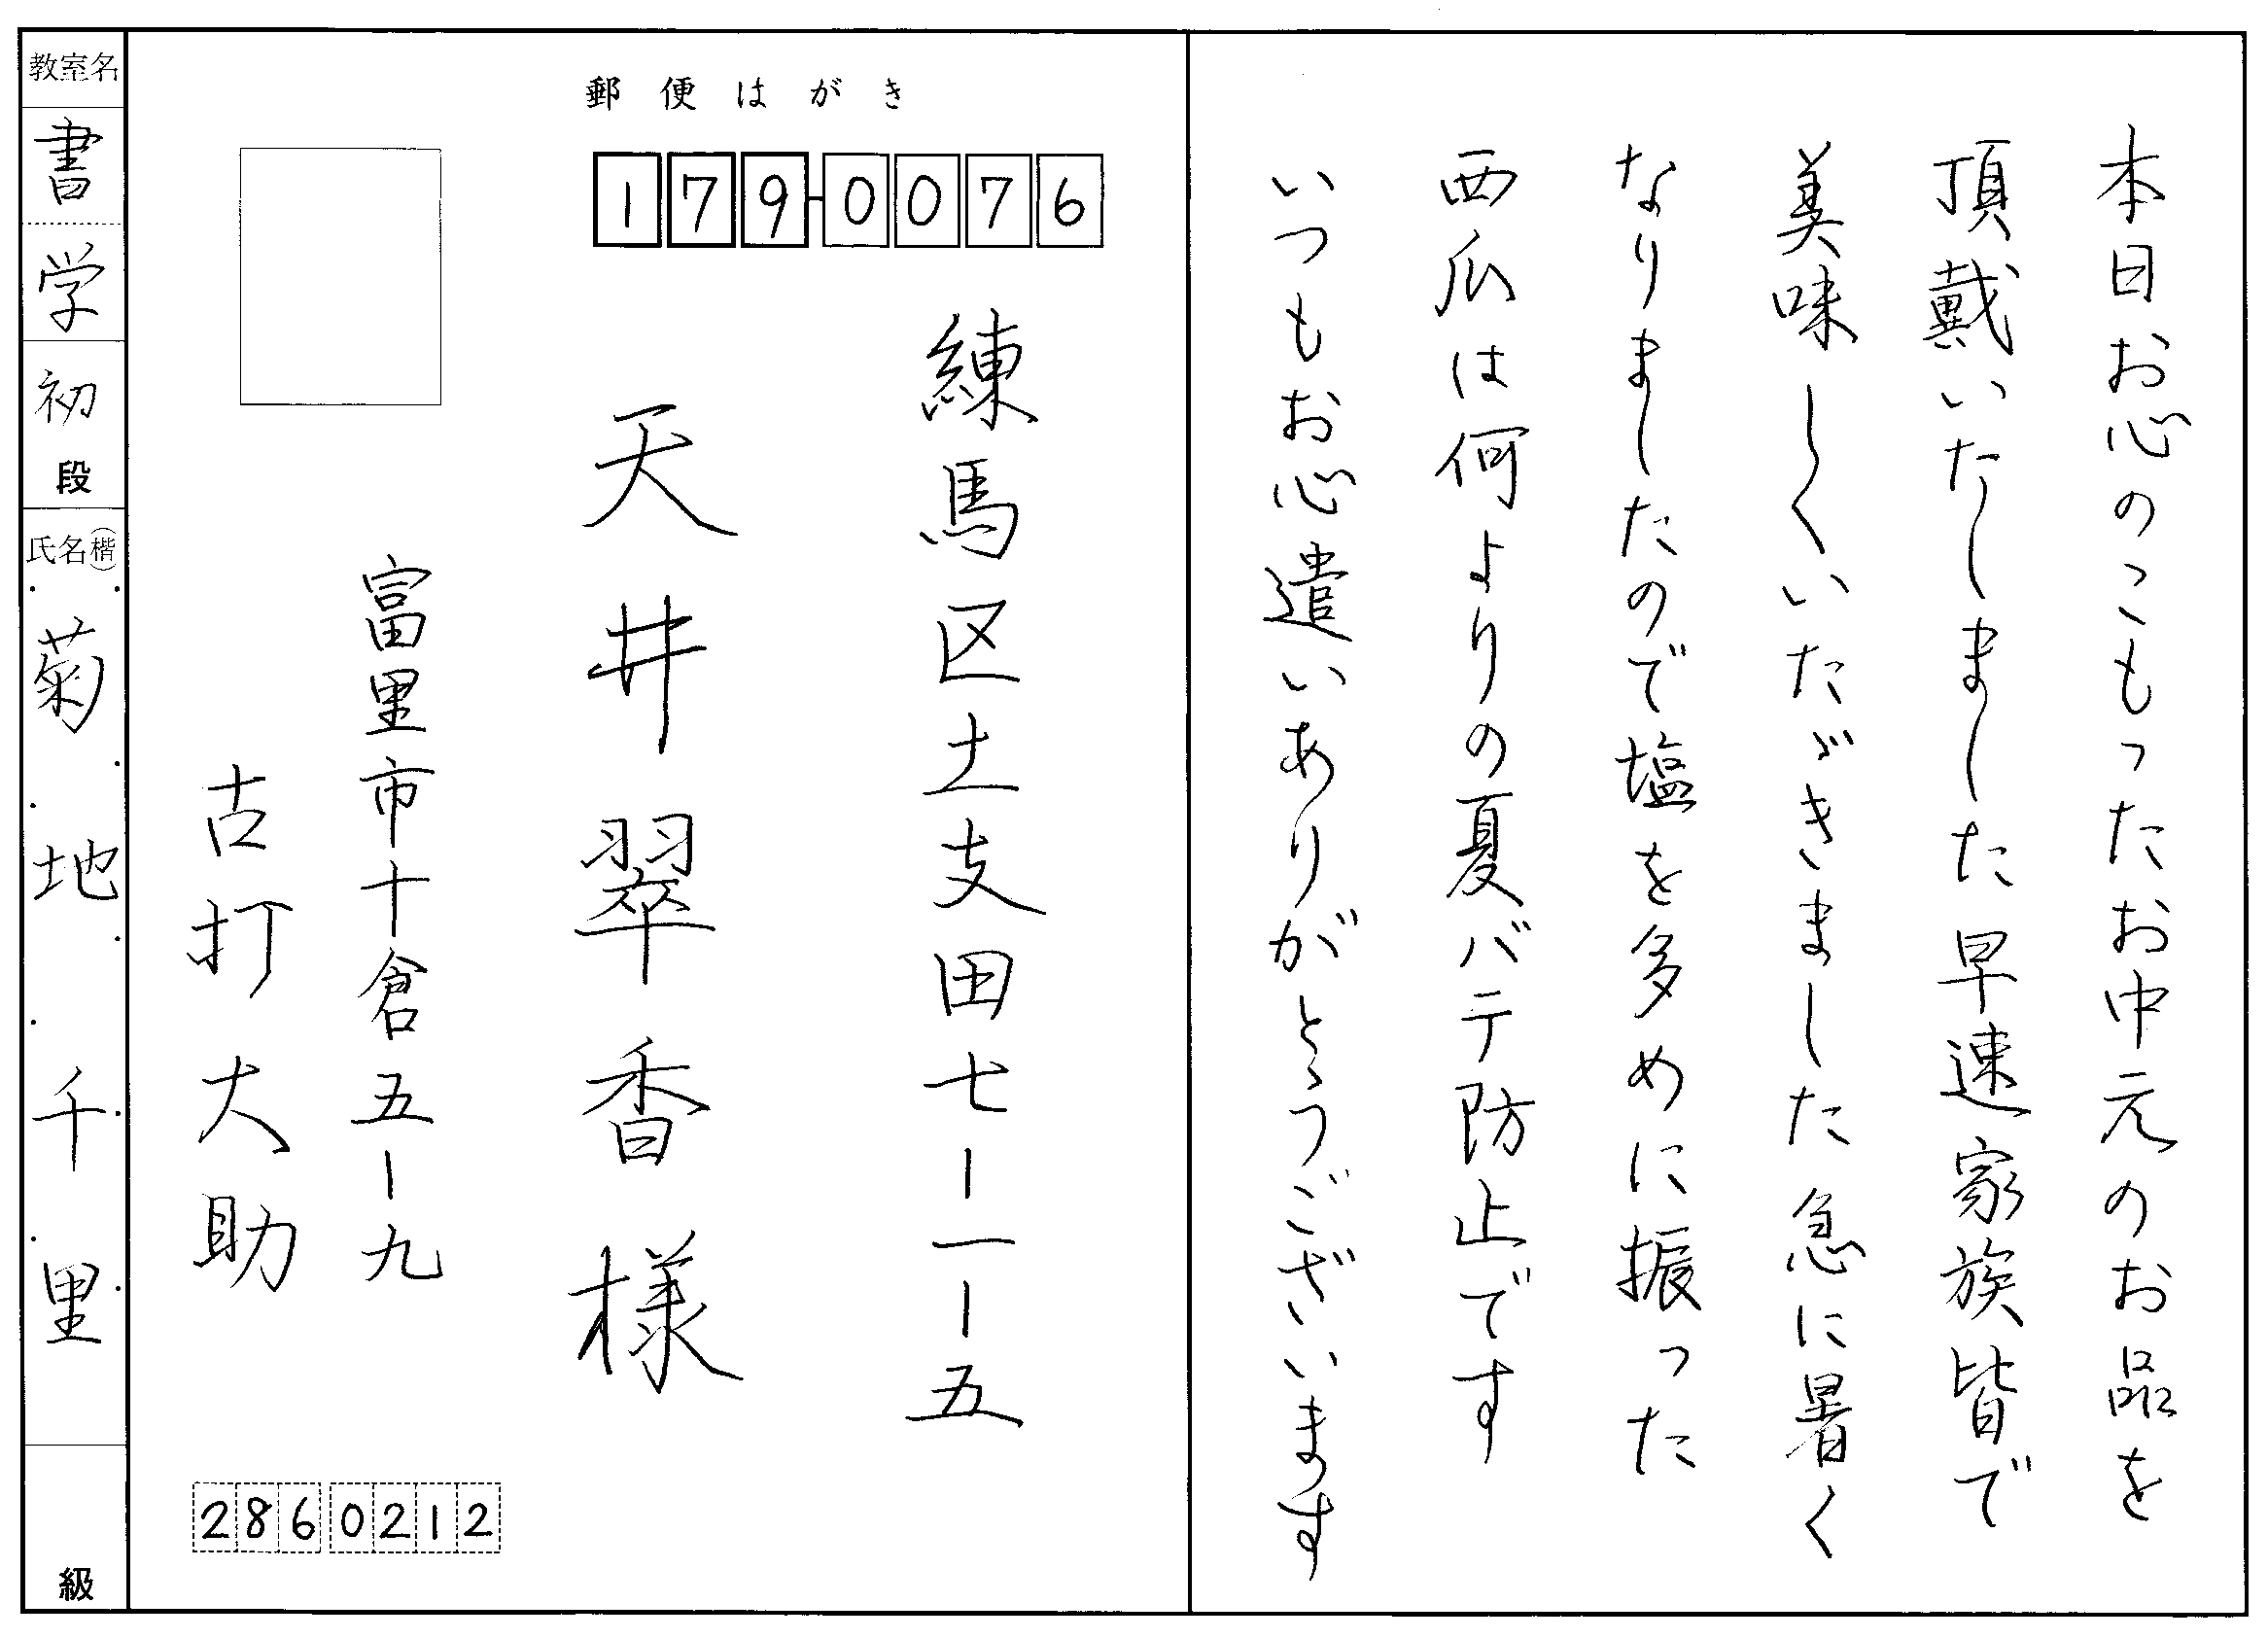 本日お心のこもったお中元のお品を
頂戴いたしました早速家族皆で
美味しくいただきました急に暑く
なりましたので塩を多めに振った
西瓜は何よりの夏バテ防止です
いつもお心遣いありがとうございます
郵便はがき
179-0076
練馬区土支田七-一-五
天井翠香様
富里市十倉五-九
古打大助
2860212
教室名
書学
初段
氏名(楷)
菊地千里
級